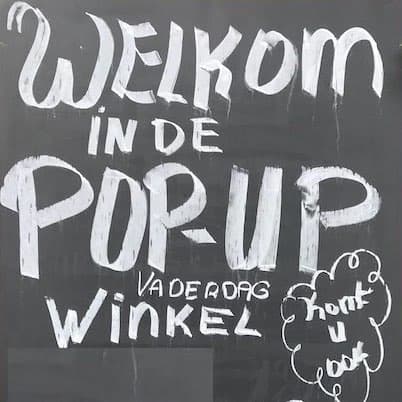 WELKOM
IN DE
POP-UP
VADERDAG
WINKEL
komt
u
ook